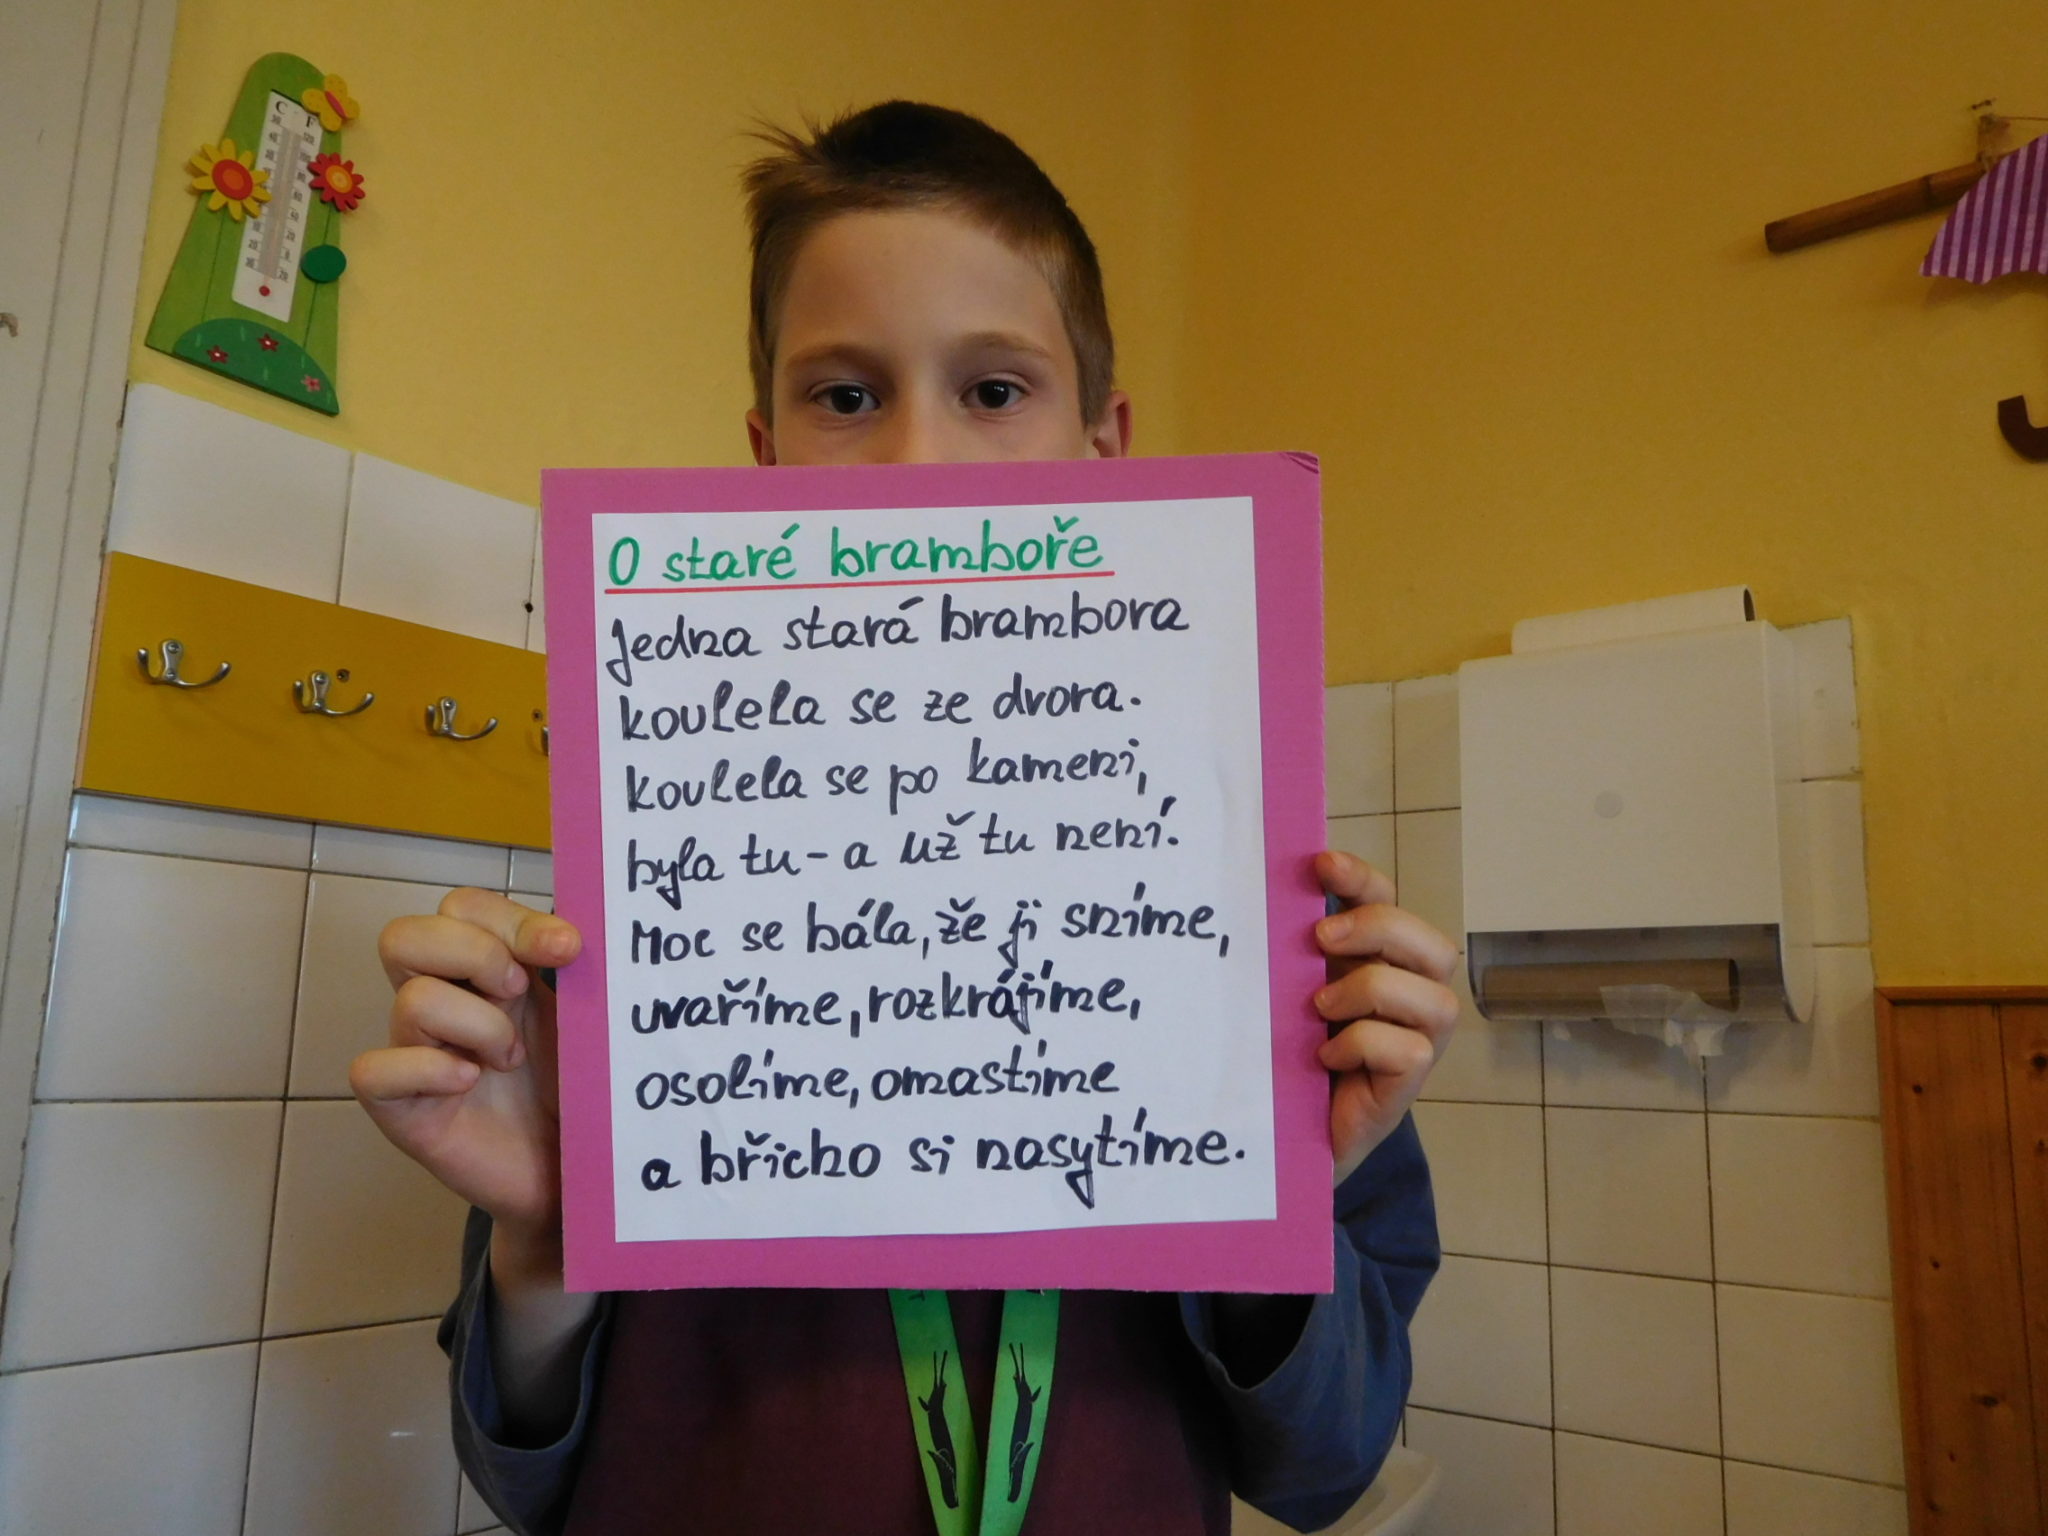 C F
O staré bramboře
Jedna stará brambora
koulela se ze dvora.
koulela se po kameni,
byla tu - a už tu není.
Moc se bála, že ji sníme,
uvaříme, rozkrájíme,
osolíme, omastíme
a břicho si nasytíme.